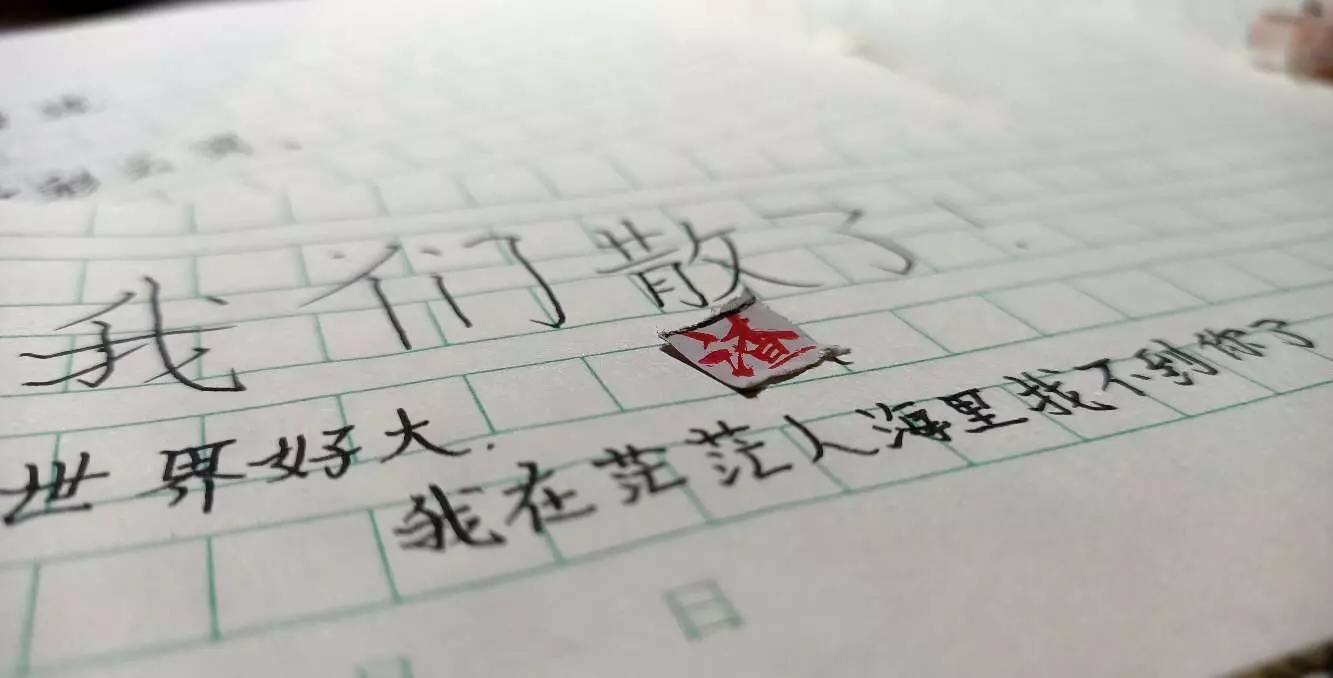 我们散了
渣
世界好大.
我在茫茫人海里找不到你了
日